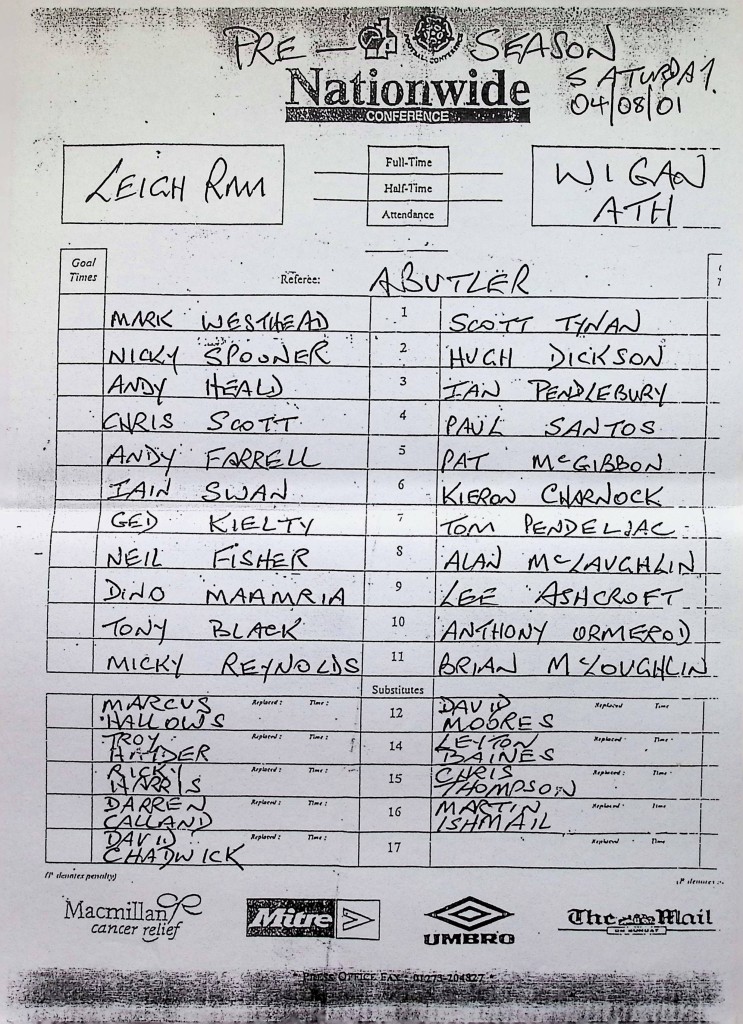 PRE - SEASON
FOOTBALL CONFERENCE
SATURDAY.
04/08/01
Nationwide
CONFERENCE
LEIGH RMI
Full-Time
Half-Time
Attendance
WIGAN
ATH
Goal
Times
Referee: A BUTLER
MARK WESTHEAD 1 SCOTT TYNAN
NICKY SPOONER 2 HUGH DICKSON
ANDY HEALD 3 IAN PENDLEBURY
CHRIS SCOTT 4 PAUL SANTOS
ANDY FARRELL 5 PAT McGIBBON
IAIN SWAN 6 KIERON CHARNOCK
GED KIELTY 7 TOM PENDELJAC
NEIL FISHER 8 ALAN McLAUGHLIN
DINO MAAMRIA 9 LEE ASHCROFT
TONY BLACK 10 ANTHONY ORMEROD
MICKY REYNOLDS 11 BRIAN McLOUGHLIN
Substitutes
MARCUS HALLOWS Replaced: Time: 12 DAVID MOORES Replaced Time
TROY HAYDER Replaced: Time: 14 LEYTON BAINES Replaced: Time
RICKY HARRIS Replaced: Time: 15 CHRIS THOMPSON Replaced: Time
DARREN CALLAND Replaced: Time: 16 MARTIN ISHMAIL Replaced Time
DAVID CHADWICK Replaced: Time: 17 Replaced Time
(P denotes penalty)
(P denotes
Macmillan
cancer relief
Mitre
UMBRO
The Mail
ON SUNDAY
* PRESS OFFICE FAX: 01273-204827 *